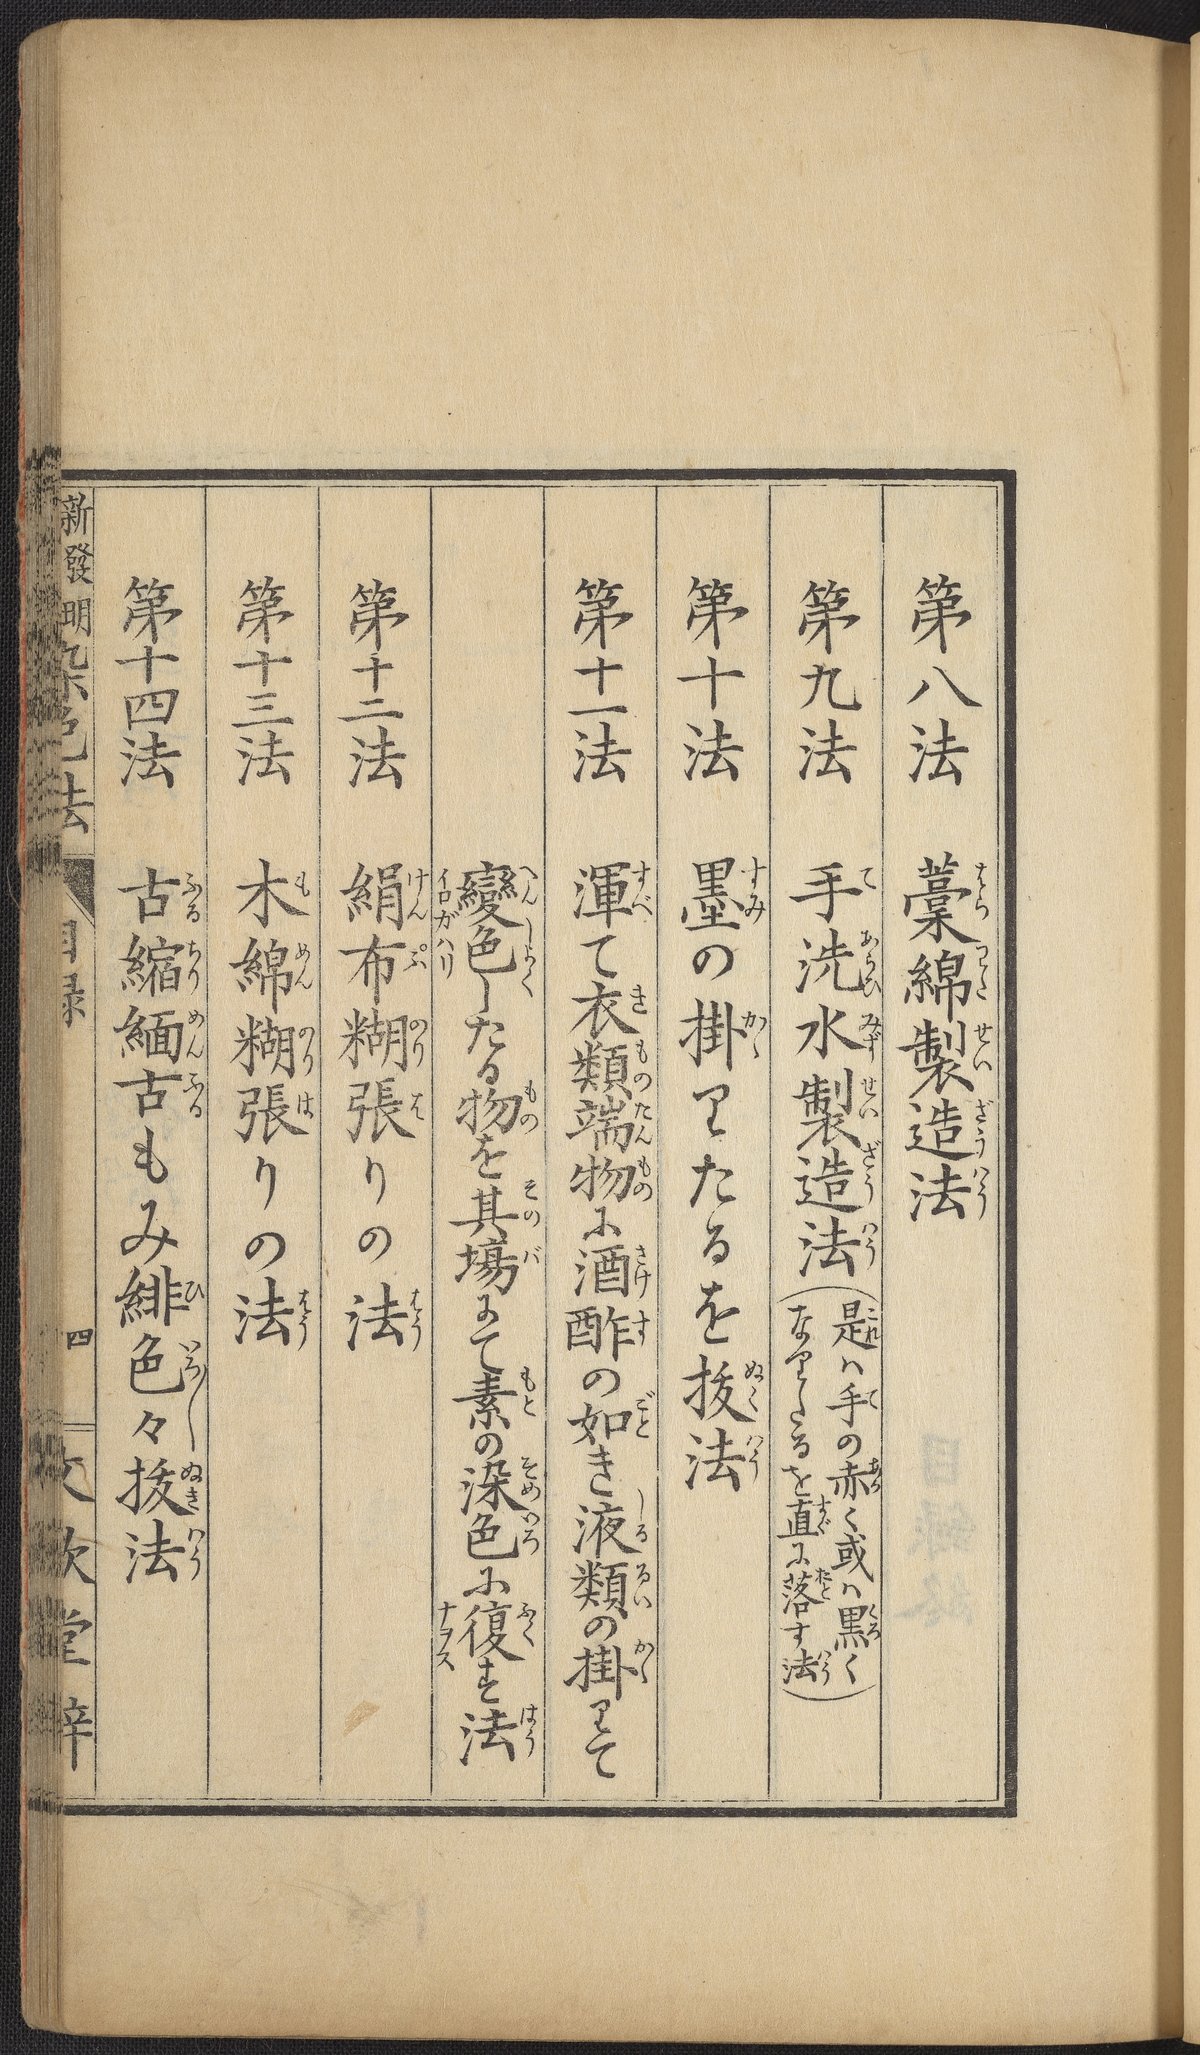 第八法　藁綿製造法
第九法　手洗水製造法（是ハ手の赤く或ハ黒く
なりたるを直に落す法）
第十法　墨の掛りたるを抜法
第十一法　渾て衣類端物に酒酢の如き液類の掛りて
變色したる物を其場にて素の染色に復す法
第十二法　絹布糊張りの法
第十三法　木綿糊張りの法
第十四法　古縮緬古もみ緋色々抜法
新發明染色法　目録　四